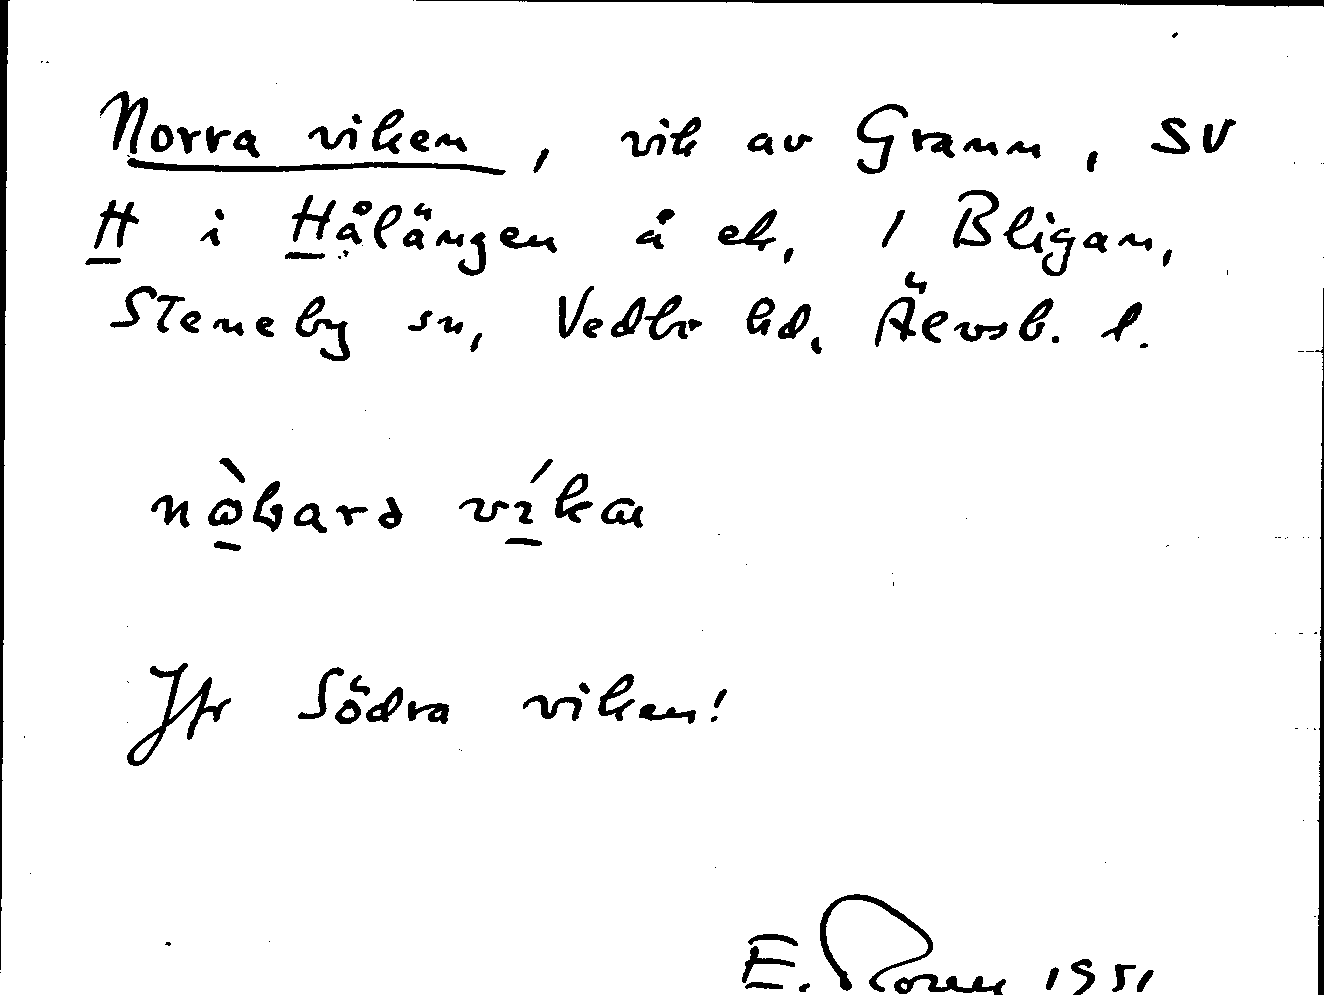 Norra viken, vik av Grann, SV
H i Hålängen å ek. 1 Bligan,
Steneby sn, Vedbo hd, Älvsb. l.
Jfr Södra viken!
E. 1951